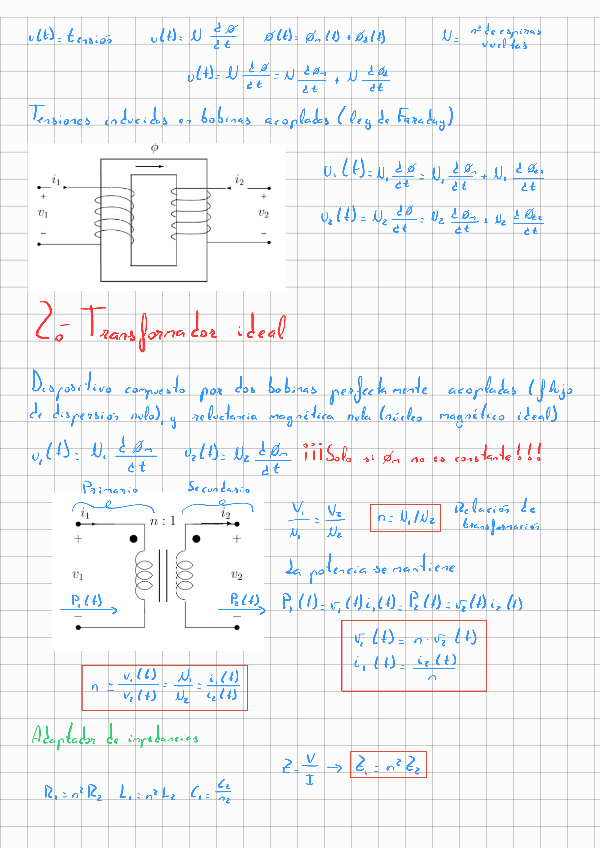 v(t)= tensión v(t)= N dø/dt ø(t)= øm(t) + øs(t) N= nº de espiras
vueltas
v(t)= N dø/dt = N døm/dt + N døs/dt
Tensiones inducidas en bobinas acopladas (ley de Faraday)
ϕ
i₁ i₂
+ +
v₁ v₂
− −
v₁(t)= N₁ dø/dt = N₁ døm/dt + N₁ døs₁/dt
v₂(t)= N₂ dø/dt = N₂ døm/dt + N₂ døs₂/dt
2.- Transformador ideal
Dispositivo compuesto por dos bobinas perfectamente acopladas (flujo
de dispersión nulo), y reluctancia magnética nula (núcleo magnético ideal)
v₁(t)= N₁ døm/dt v₂(t)= N₂ døm/dt ¡¡¡Solo si øm no es constante!!!
Primario Secundario
i₁ n : 1 i₂
+ +
v₁ v₂
P₁(t) P₂(t)
− −
V₁/N₁ = V₂/N₂ n = N₁/N₂ Relación de
transformación
La potencia se mantiene
P₁(t) = v₁(t) i₁(t) = P₂(t) = v₂(t) i₂(t)
v₁(t) = n · v₂(t)
i₁(t) = i₂(t)/n
n = v₁(t)/v₂(t) = N₁/N₂ = i₁(t)/i₂(t)
Adaptador de impedancias
Z = V/I → Z₁ = n² Z₂
R₁ = n² R₂ L₁ = n² L₂ C₁ = C₂/n²